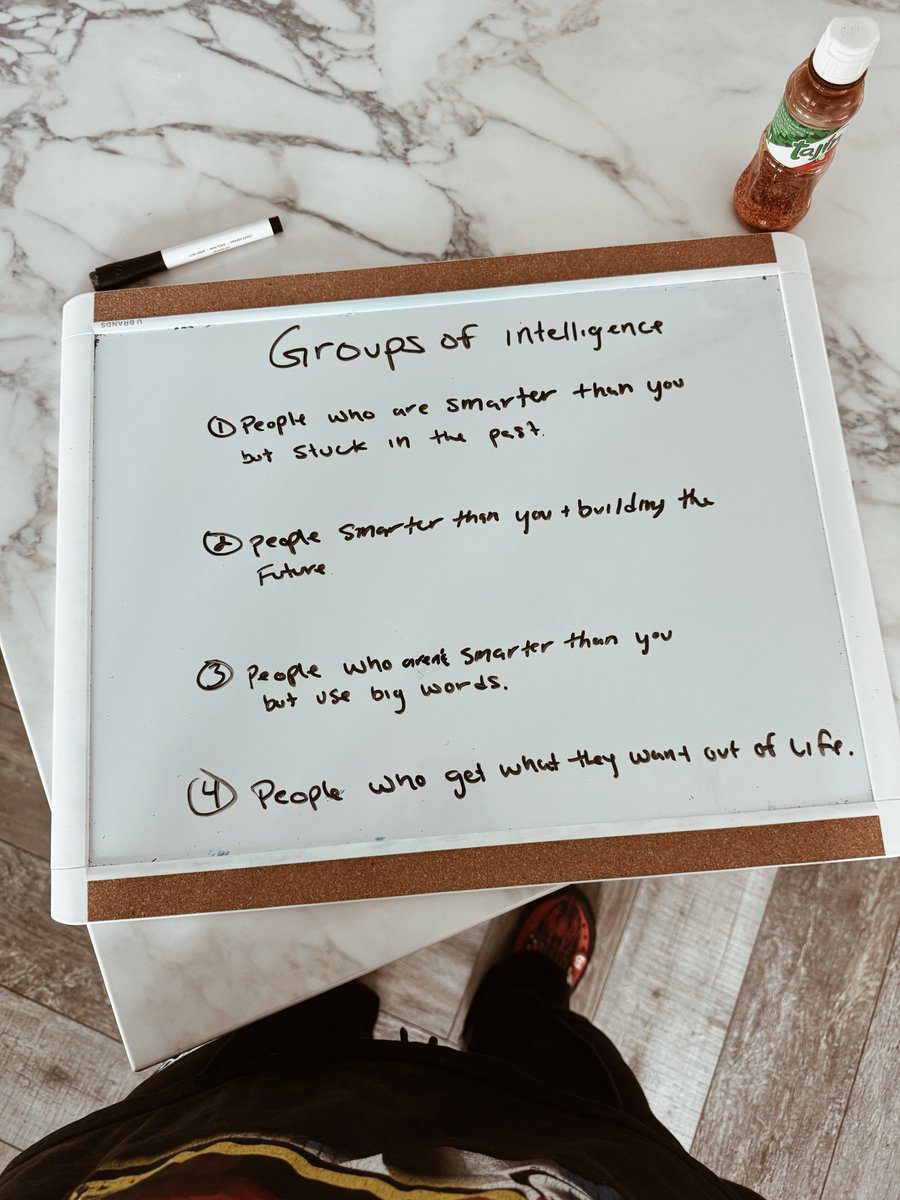 tajín
U BRANDS
Groups of intelligence
① People who are smarter than you
but stuck in the past.
② people smarter than you + building the
Future.
③ People who aren't smarter than you
but use big words.
④ People who get what they want out of life.